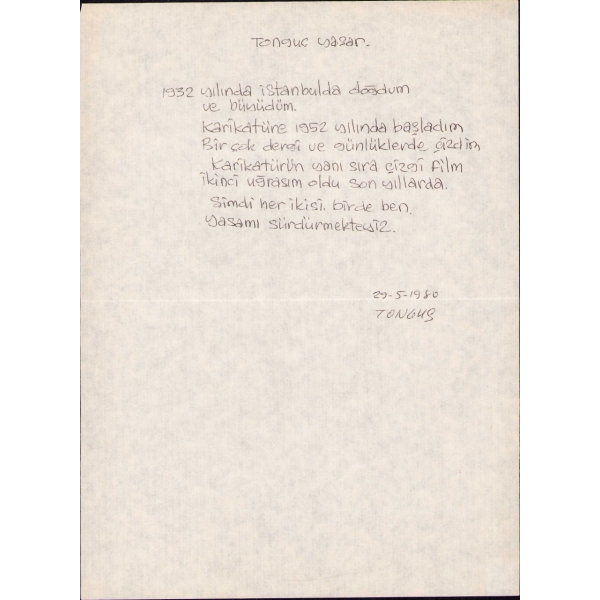 Tonguç Yaşar.
1932 yılında istanbulda doğdum
ve büyüdüm.
Karikatüre 1952 yılında başladım
Bir çok dergi ve günlüklerde çizdim
Karikatürün yanı sıra çizgi film
ikinci uğraşım oldu son yıllarda.
Şimdi her ikisi, birde ben,
yaşamı sürdürmekteyiz.
29-5-1980
TONGUÇ